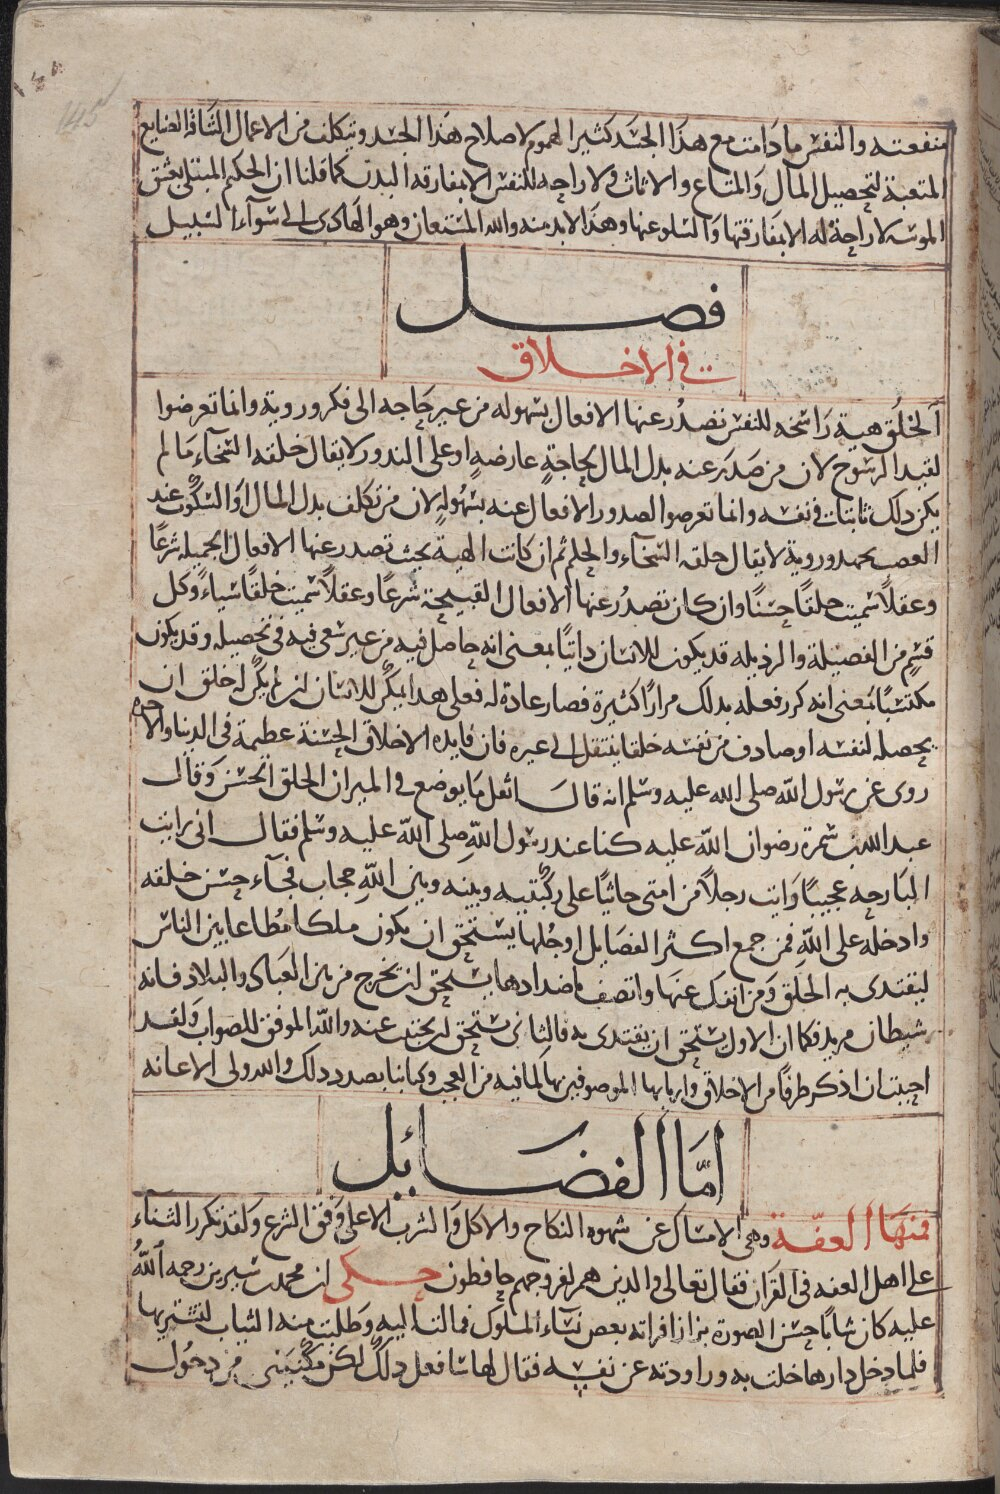 145
منفعته والنفس ما دامت مع هذا الجسد كثير الهموم لاصلاح هذا الجسد وتتكلف من الاعمال الشاقة الصنايع
المتعبة لتحصيل المال والمتاع والاثاث ولا راحه للنفس الا بمفارقه البدن كما قلنا ان الحكيم المبتلى بعشق
المومسه لا راحة له الا بمفارقتها والسلو عنها وهذا لابد منه والله المستعان وهو الهادى الى سوآء السبيل
فصل
في الاخلاق
الخلق هية راسخه للنفس تصدر عنها الافعال بسهوله من غير حاجه الى فكر وروية وانما تعرضوا
لقيد الرسوخ لان من صدر عنه بدل المال لحاجة عارضة او على الندور لا يقال خلقه السخآء ما لم
يكن دلك ثابتا فى نفسه وانما تعرضوا لصدور الافعال عنه بسهولة لان من تكلف بدل المال او السكوت عند
الغضب بجهد وروية لا يقال خلقه السخآء والحلم ثم ان كانت الهية بحيث تصدر عنها الافعال الجميله شرعا
وعقلا سميت خلقا حسنا وان كان تصدر عنها الافعال القبيحة شرعا وعقلا سميت خلقا سياء وكل
قسم من الفضيلة والرذيله قد يكون للانسان داتيا بمعنى انه حاصل فيه من غير سعى فيه فى تحصيله وقد يكون
مكتسبا بمعنى انه كرر فعله بدلك مرارا كثيرة فصار عادة له فعلى هدا يمكن للانسان ان لم يكن له خلق ان
يحصله لنفسه او صادف من نفسه خلقا ينتقل الى غيره فان فايده الاخلاق الحسنة عظيمة فى الدنيا والاخره
روى عن رسول الله صلى الله عليه وسلم انه قال اثقل ما يوضع في الميزان الخلق الحسن وقال
عبد الله بن سمرة رضوان الله عليه كنا عند رسول الله صلى الله عليه وسلم فقال انى رايت
البارحه عجيبا رايت رجلا من امتى جاثيا على ركبتيه وبينه وبين الله حجاب فجآء حسن خلقه
وادخله على الله فمن جمع اكثر الفضايل او جلها يستحق ان يكون ملكا مطاعا بين الناس
ليقتدى به الخلق ومن انفك عنها واتصف باضدادها يستحق ان يخرج من بين العباد والبلاد فانه
شيطان مريد فكما ان الاول يستحق ان يقتدى به فالثانى يستحق ان يجتنب عنه والله الموفق للصواب ولقد
احببت ان اذكر طرفا من الاخلاق واربابها الموصوفين بها لما فيه من العجب وكتابنا بصدد دلك والله ولى الاعانه
اما الفضايل
فمنها العفة وهى الامساك عن شهوه النكاح والاكل والشرب الا على وفق الشرع ولقد تكرر الثناء
على اهل العفه فى القرآن فقال تعالى والدين هم لفروجهم حافظون حكى ان محمد بن سيرين رحمه الله
عليه كان شابا حسن الصورة بزازا فراته بعض نساء الملوك فمالت اليه وطلبت منه الثياب لتشتريها
فلما دخل دارها خلت به وراودته عن نفسه فقال لها سافعل دلك لكن مكنينى من دخول